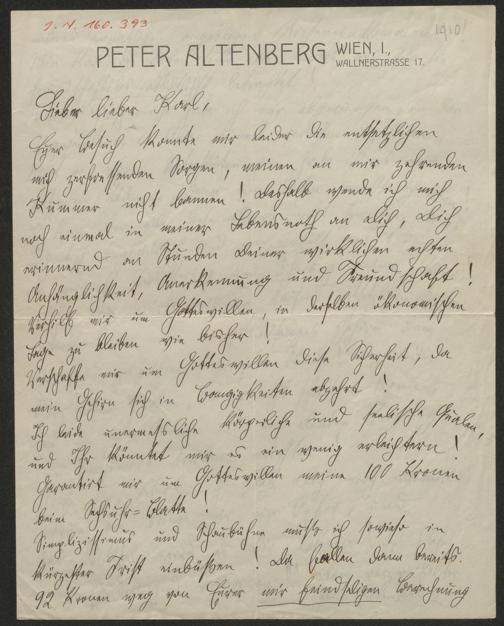 J. N. 160.393
1910!
PETER ALTENBERG WIEN, I.,
WALLNERSTRASSE 17.
Lieber lieber Karl,
Euer Besuch konnte mir leider die entsetzlichen
mich zerfressenden Sorgen, meinen an mir zehrenden
Kummer nicht bannen! Deshalb wende ich mich
noch einmal in meiner Lebensnoth an Dich, Dich
erinnernd an Stunden Deiner wirklichen echten
Anhänglichkeit, Anerkennung und Freundschaft!
Verhilf mir um Gotteswillen, in derselben ökonomischen
Lage zu bleiben wie bisher!
Verschaffe mir um Gotteswillen diese Sicherheit, da
mein Gehirn sich in Bangigkeiten abzehrt!
Ich leide unermessliche körperliche und seelische Qualen,
und Ihr könntet mir es ein wenig erleichtern!
Garantirt mir um Gotteswillen meine 100 Kronen
beim Sechsuhr=Blatte!
Simplizissimus und Schaubühne muß ich sowieso in
kürzester Frist einbüßen! Da fallen dann bereits
92 Kronen weg von Eurer mir feindseligen Berechnung